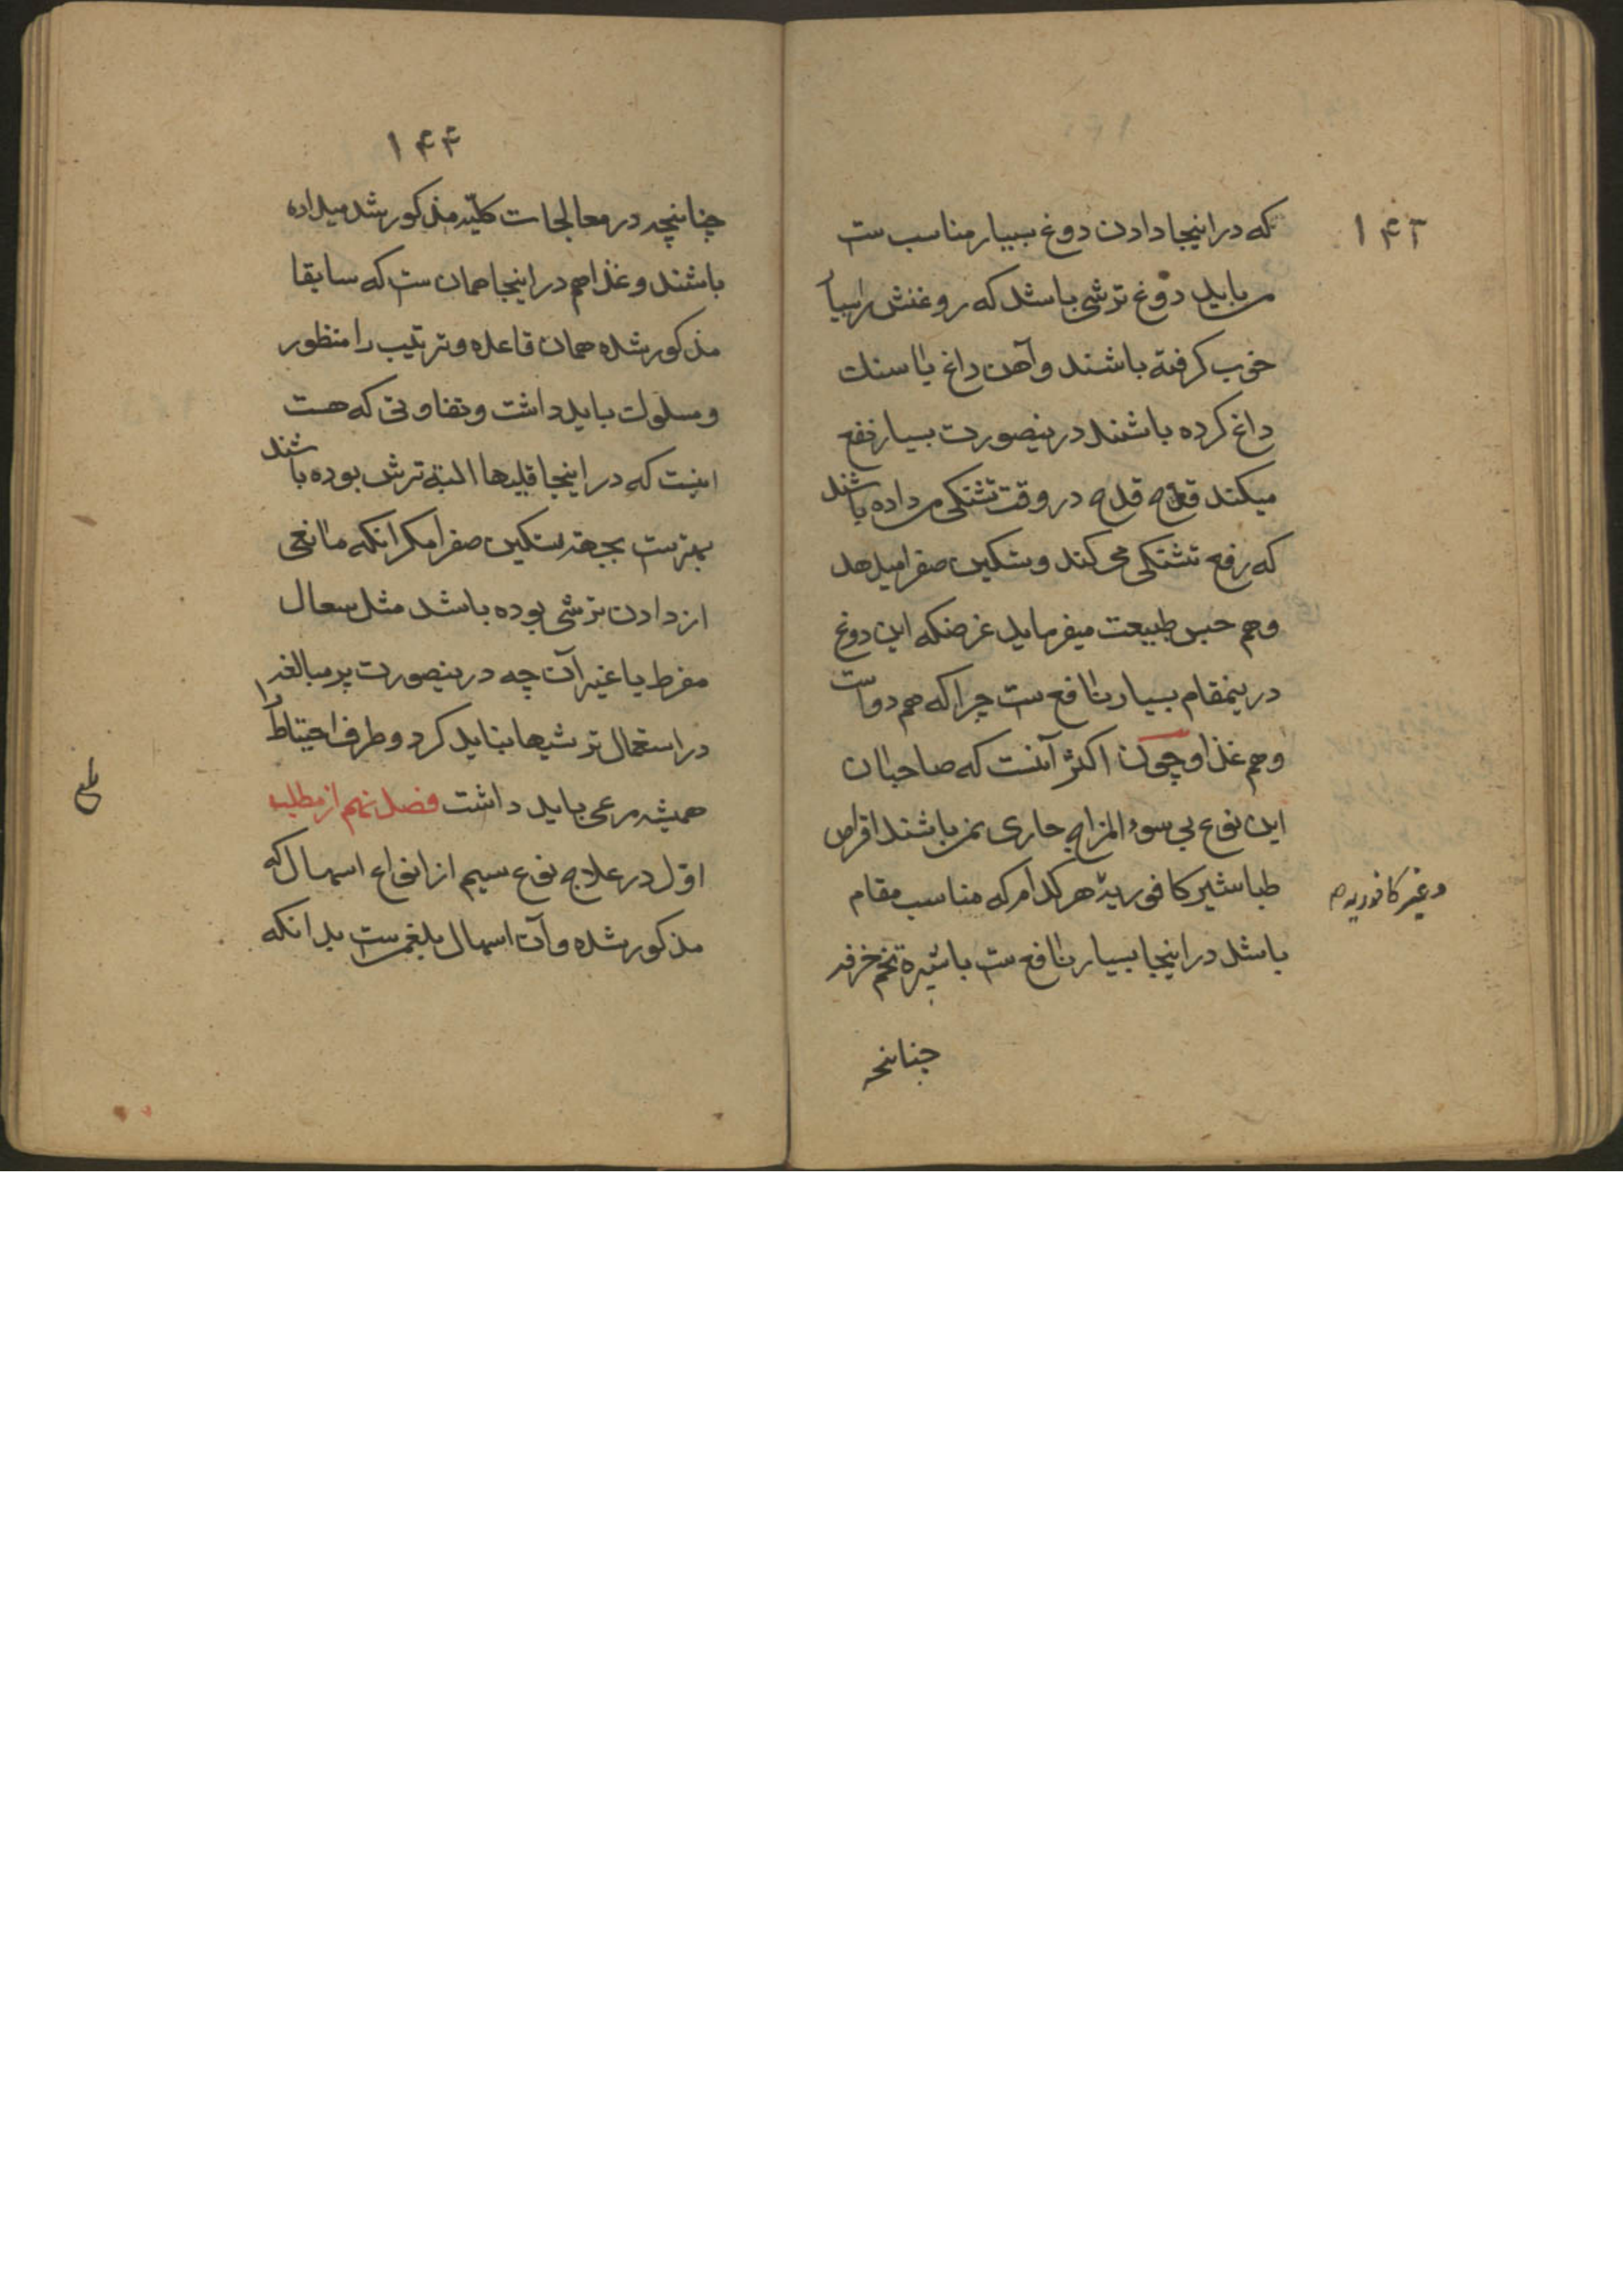 ۱۴۳
که در اینجا دادن دوغ بسیار مناسب ست
می باید دوغ ترشی باشد که روغنش را بسیار
خوب کرفته باشند و آهن داغ یا سنک
داغ کرده باشند درینصورت بسیار نفع
میکند قدح قدح در وقت تشنکی می داده باشند
که رفع تشنکی می کند و تسکین صفرا میدهد
و هم حبس طبیعت میفرماید غرضکه این دوغ
درینمقام بسیار نافع ست چرا که هم دواست
و هم غذا و چون اکثر آنست که صاحبان
این نوع بی سوء المزاج حاری نمی باشند اقراص
طباشیر کافوریه هر کدام که مناسب مقام
وغیر کافوریه
باشد در اینجا بسیار نافع ست با شیره تخم خرفه
چنانچه
۱۴۴
چنانچه در معالجات کلیه مذکور شد میداده
باشند و غذا هم در اینجا همان ست که سابقا
مذکور شده همان قاعده و ترتیب را منظور
و مسلوک باید داشت و تفاوتی که هست
اینست که در اینجا قلیها البته ترش بوده باشند
بهترست بجهة تسکین صفرا مکر انکه مانعی
از دادن ترشی بوده باشد مثل سعال
مفرط یا غیر آن چه درینصورت پر مبالغه
در استعمال ترشیها نباید کرد و طرف احتیاط را
همیشه مرعی باید داشت فصل نهم از مطلب
اول در علاج نوع سیم از انواع اسهال که
مذکور شده و آن اسهال بلغمی ست بدانکه